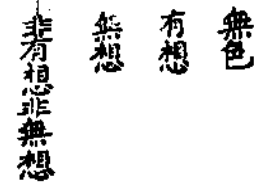 無色
有想
無想
非有想非無想